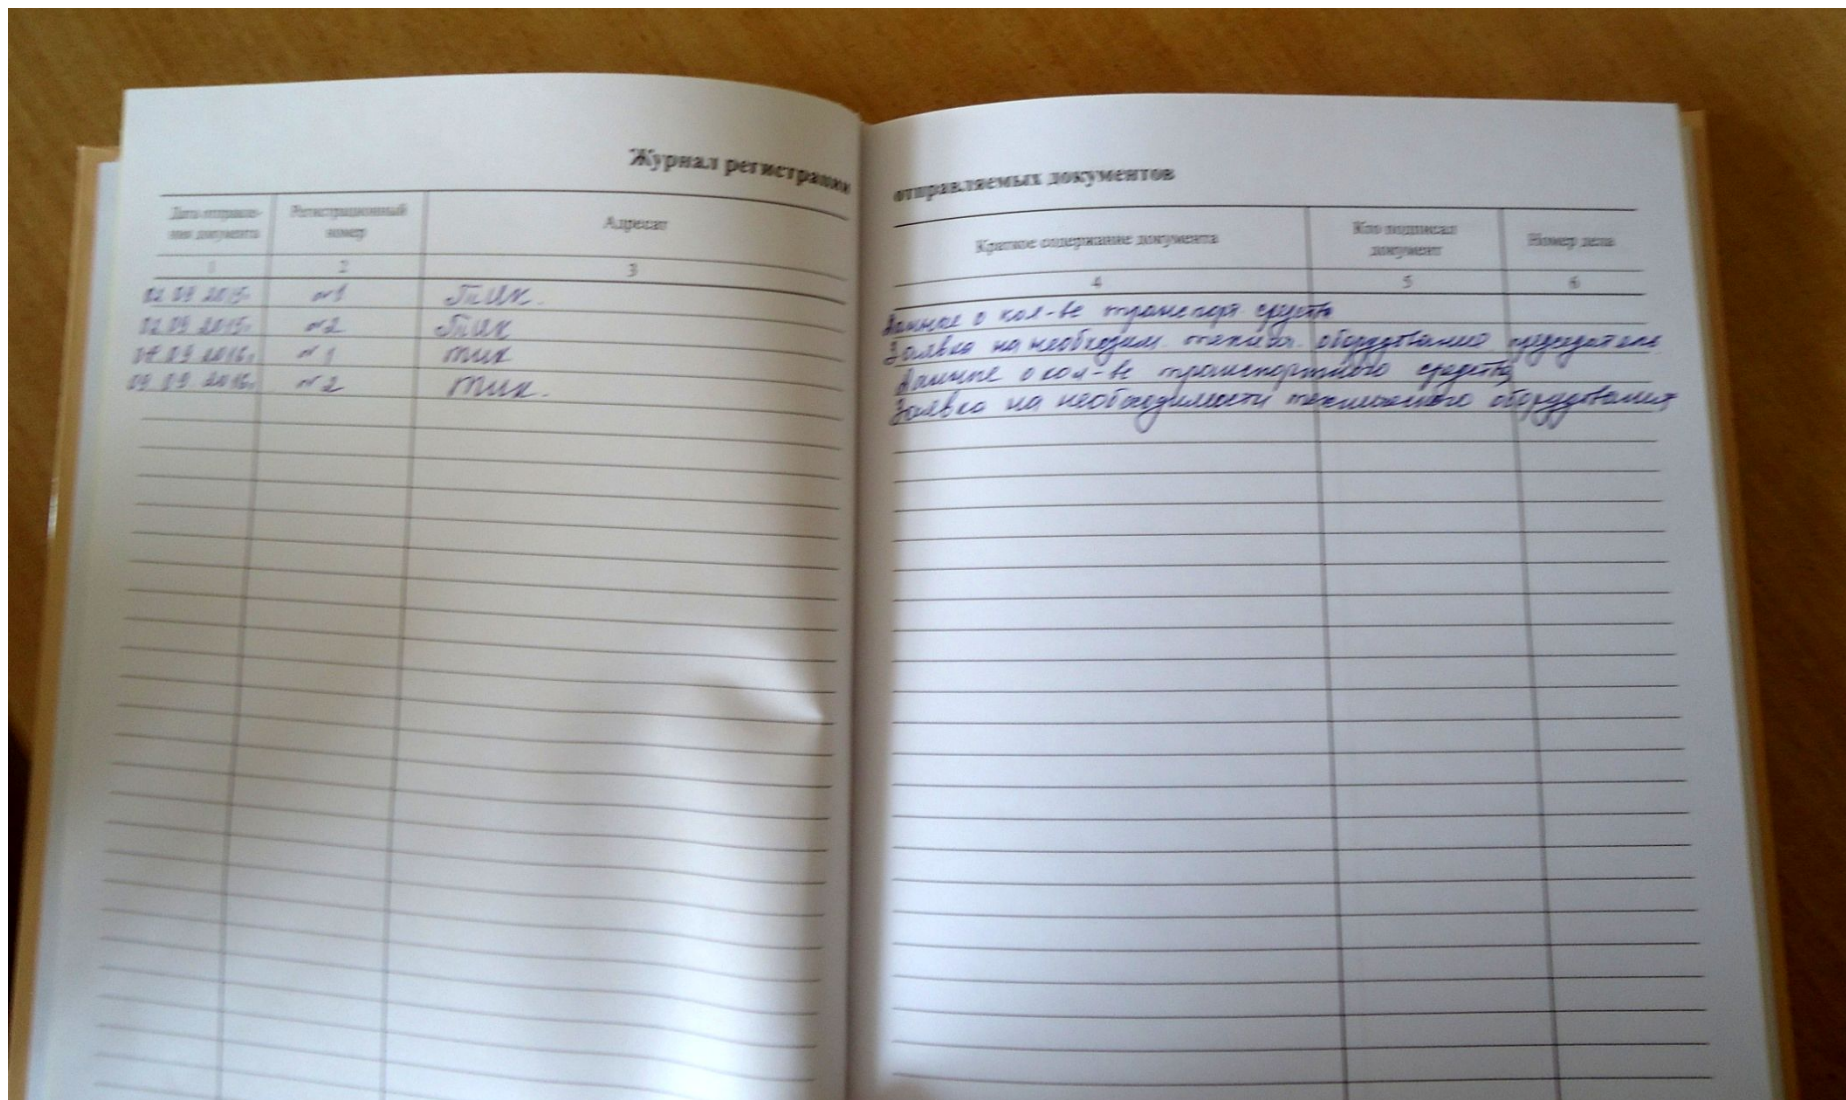 Журнал регистрации отправляемых документов
Дата отправле-
ния документа
Регистрационный
номер
Адресат
Краткое содержание документа
Кто подписал
документ
Номер дела
1 2 3 4 5 6
02.09.2015г. №1 ТИК. Данные о кол-ве транспорт средств
02.09.2015г. №2 ТИК Заявка на необходим. технич. оборудование председатель
09.2016г. №1 тик Данные о кол-ве транспортного средства
09.09.2016г. №2 тик. Заявка на необходимости технического оборудования